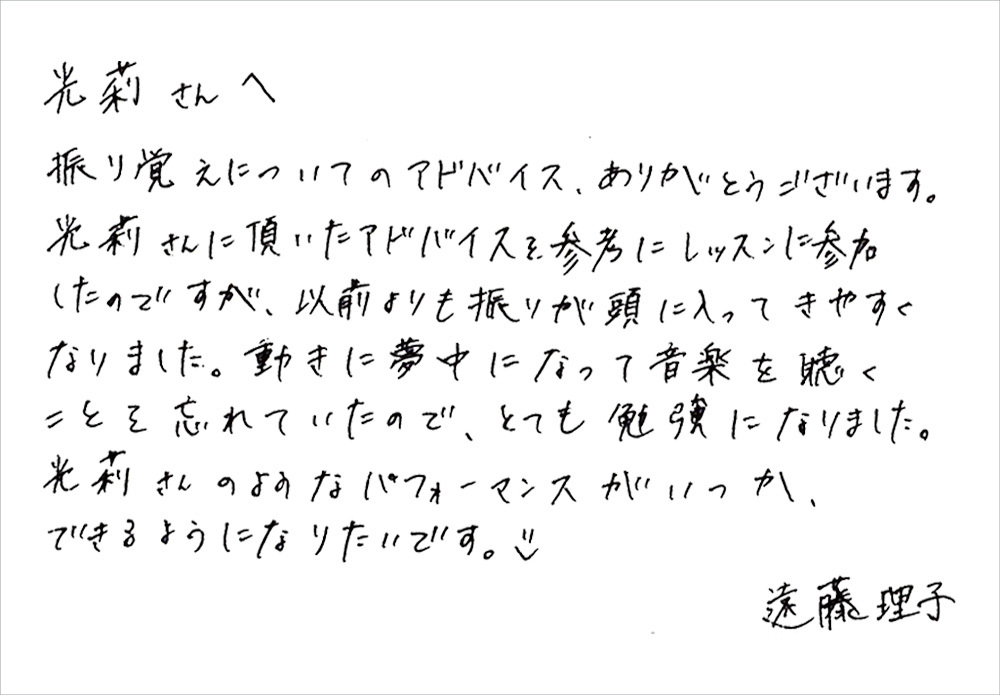 光莉さんへ
振り覚えについてのアドバイス、ありがとうございます。
光莉さんに頂いたアドバイスを参考にレッスンに参加
したのですが、以前よりも振りが頭に入ってきやすく
なりました。動きに夢中になって音楽を聴く
ことを忘れていたので、とても勉強になりました。
光莉さんのようなパフォーマンスがいつか、
できるようになりたいです。
遠藤理子